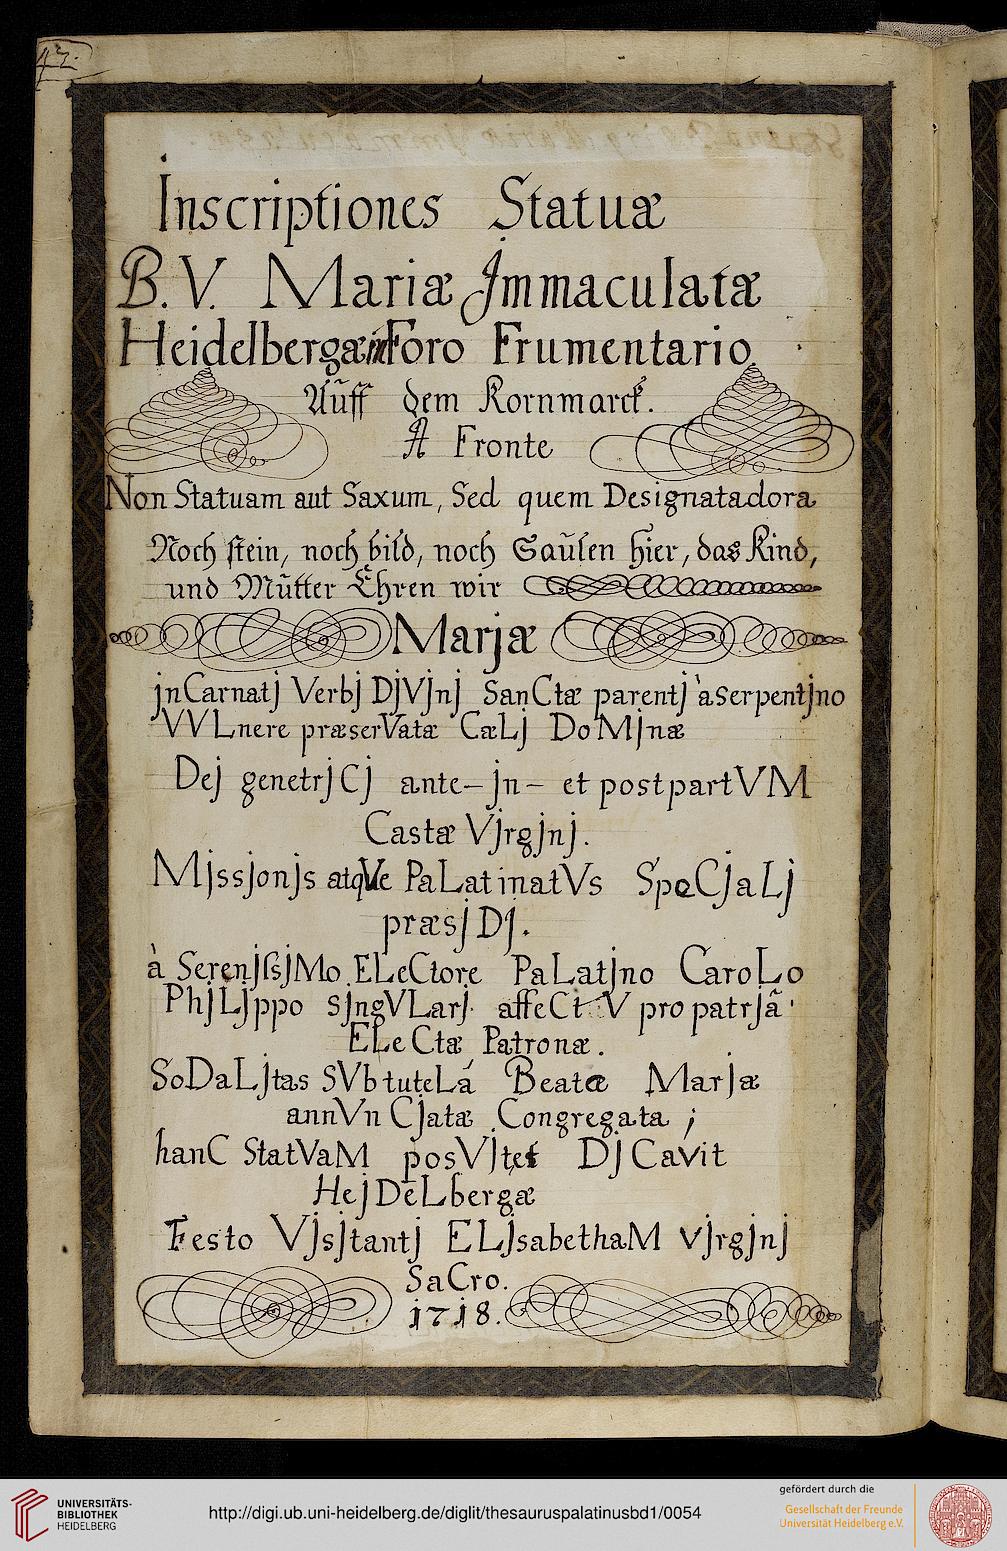 43.
Inscriptiones Statuæ
B. V. Mariæ Jmmaculatæ
Heidelbergæ in Foro Frumentario
Aŭff dem Kornmarck.
A Fronte
Non Statuam aut Saxum, Sed quem Designat adora
Noch stein, noch bild, noch Saŭlen hier, das Kind,
und Mŭtter Ehren wir
Marjæ
jnCarnatj Verbj DjVjnj SanCtæ parentj à serpentjno
VVLnere præserVatæ CæLj DoMjnæ
Dej genetrjCj ante- jn- et post partVM
Castæ Vjrgjnj.
Mjssjonjs atqVe PaLatinatVs SpeCjaLj
præsjDj.
à SerenjssjMo ELeCtore PaLatjno CaroLo
PhjLjppo sjngVLarj affeCtV pro patrjâ
ELeCtæ Patronæ.
SoDaLjtas sVb tuteLá Beatæ Marjæ
annVnCjatæ Congregata ;
hanC StatVaM posVjt et DjCavit
HejDeLbergæ
Festo Vjsjtantj ELjsabethaM vjrgjnj
SaCro.
1718.
UNIVERSITÄTS-
BIBLIOTHEK
HEIDELBERG
http://digi.ub.uni-heidelberg.de/diglit/thesauruspalatinusbd1/0054
gefördert durch die
Gesellschaft der Freunde
Universität Heidelberg e.V.